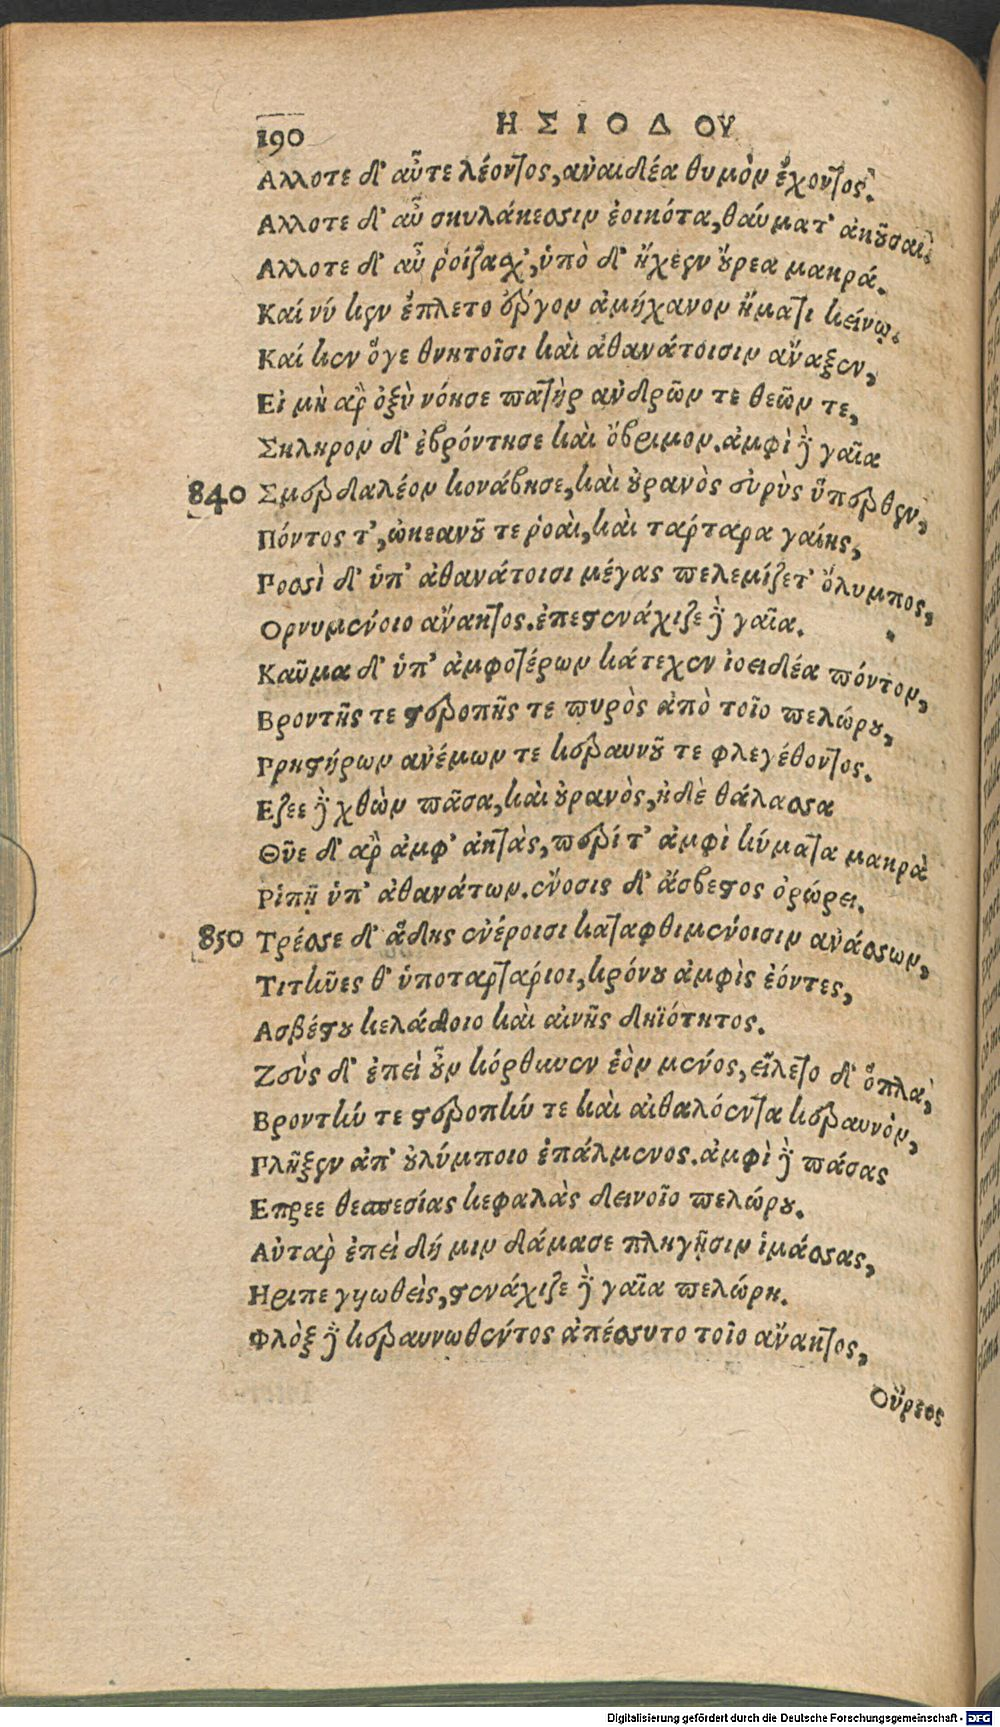 190
ΗΣΙΟΔΟΥ
Αλλοτε δ' αὖτε λέοντος, ἀναιδέα θυμὸν ἔχοντος.
Αλλοτε δ' αὖ σκυλάκεσσιν ἐοικότα, θαύματ' ἀκοῦσαι.
Αλλοτε δ' αὖ ῥοίζασχ', ὑπὸ δ' ἤχεεν οὔρεα μακρά.
Καί νύ κεν ἔπλετο ἔργον ἀμήχανον ἤματι κείνῳ.
Καί κεν ὅγε θνητοῖσι καὶ ἀθανάτοισιν ἄναξεν,
Εἰ μὴ ἂρ ὀξὺ νόησε πατὴρ ἀνδρῶν τε θεῶν τε,
Σκληρον δ' ἐβρόντησε καὶ ὄβριμον. ἀμφὶ δὲ γαῖα
840 Σμερδαλέον κονάβησε, καὶ οὐρανὸς εὐρὺς ὕπερθεν,
Πόντος τ', ὠκεανοῦ τε ῥοαὶ, καὶ τάρταρα γαίης,
Ποσσὶ δ' ὑπ' ἀθανάτοισι μέγας πελεμίζετ' ὄλυμπος,
Ορνυμένοιο ἄνακτος. ἐπεστενάχιζε δὲ γαῖα.
Καῦμα δ' ὑπ' ἀμφοτέρων κάτεχεν ἰοειδέα πόντον,
Βροντῆς τε στεροπῆς τε πυρὸς ἀπὸ τοῖο πελώρου,
Πρηστήρων ἀνέμων τε κεραυνοῦ τε φλεγέθοντος.
Εζεε δὲ χθὼν πᾶσα, καὶ οὐρανὸς, ἠδὲ θάλασσα
Θῦε δ' ἂρ ἀμφ' ἀκτὰς, περί τ' ἀμφὶ κύματα μακρὰ
Ριπῇ ὑπ' ἀθανάτων. ἔνοσις δ' ἄσβεστος ὀρώρει.
850 Τρέσσε δ' ἅδης ἐνέροισι καταφθιμένοισιν ἀνάσσων,
Τιτῆνες θ' ὑποταρτάριοι, κρόνου ἀμφὶς ἐόντες,
Ασβέστου κελάδοιο καὶ αἰνῆς δηϊότητος.
Ζεὺς δ' ἐπεὶ οὖν κόρθυνεν ἑὸν μένος, εἵλετο δ' ὅπλα,
Βροντήν τε στεροπήν τε καὶ αἰθαλόεντα κεραυνὸν,
Πλῆξεν ἀπ' οὐλύμποιο ἐπάλμενος. ἀμφὶ δὲ πάσας
Επρεε θεσπεσίας κεφαλὰς δεινοῖο πελώρου.
Αὐτὰρ ἐπεὶ δή μιν δάμασε πληγῇσιν ἱμάσσας,
Ηριπε γυιωθεὶς, στενάχιζε δὲ γαῖα πελώρη.
Φλὸξ δὲ κεραυνωθέντος ἀπέσσυτο τοῖο ἄνακτος,
Οὔρεος
Digitalisierung gefördert durch die Deutsche Forschungsgemeinschaft - DFG